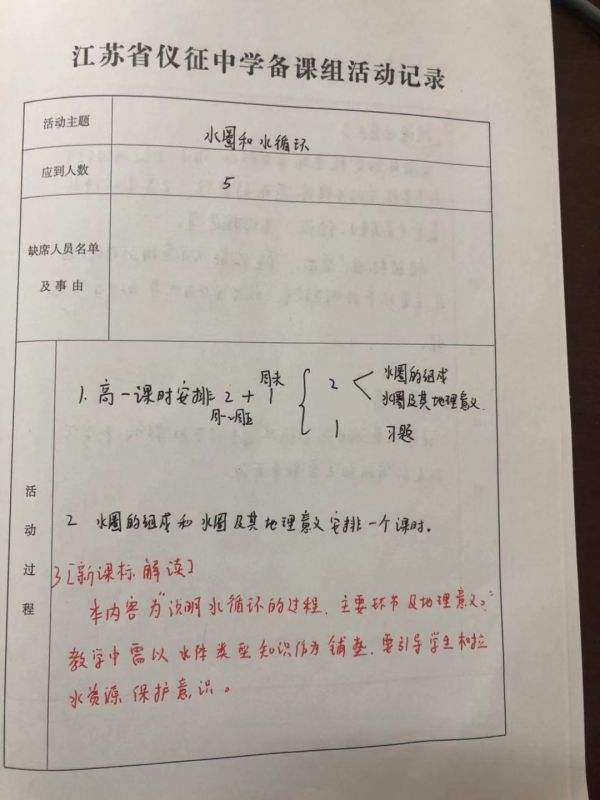 江苏省仪征中学备课组活动记录
活动主题
水圈和水循环
应到人数
5
缺席人员名单
及事由
活动过程
1. 高一课时安排 2 + 1
周末
周一~周五
2
水圈的组成
水圈及其地理意义
1 习题
2 水圈的组成和水圈及其地理意义安排一个课时。
3 [新课标解读]
本内容为“说明水循环的过程、主要环节及地理意义。”
教学中需以水体类型知识作为铺垫，要引导学生和拉
水资源保护意识。